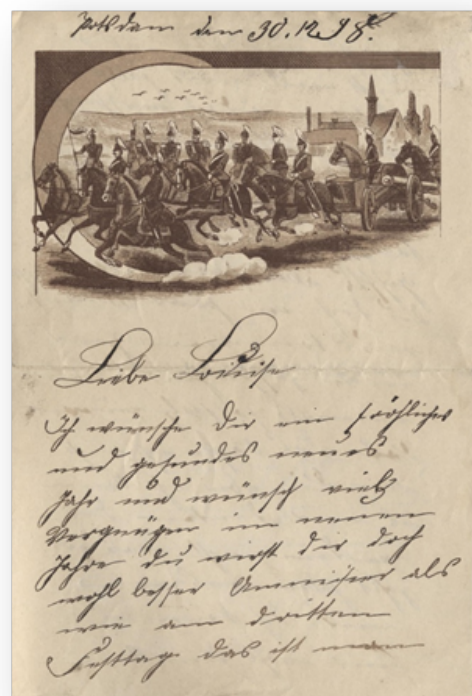 Potsdam den 30.12.98.
Liebe Louise
Ich wünsche Dir ein fröhliches
und gesundes neues
Jahr und wünsch viel
Vergnügen im neuen
Jahre du wirst dir doch
wohl besser Ammisier als
wie am dritten
Festtag das ist man